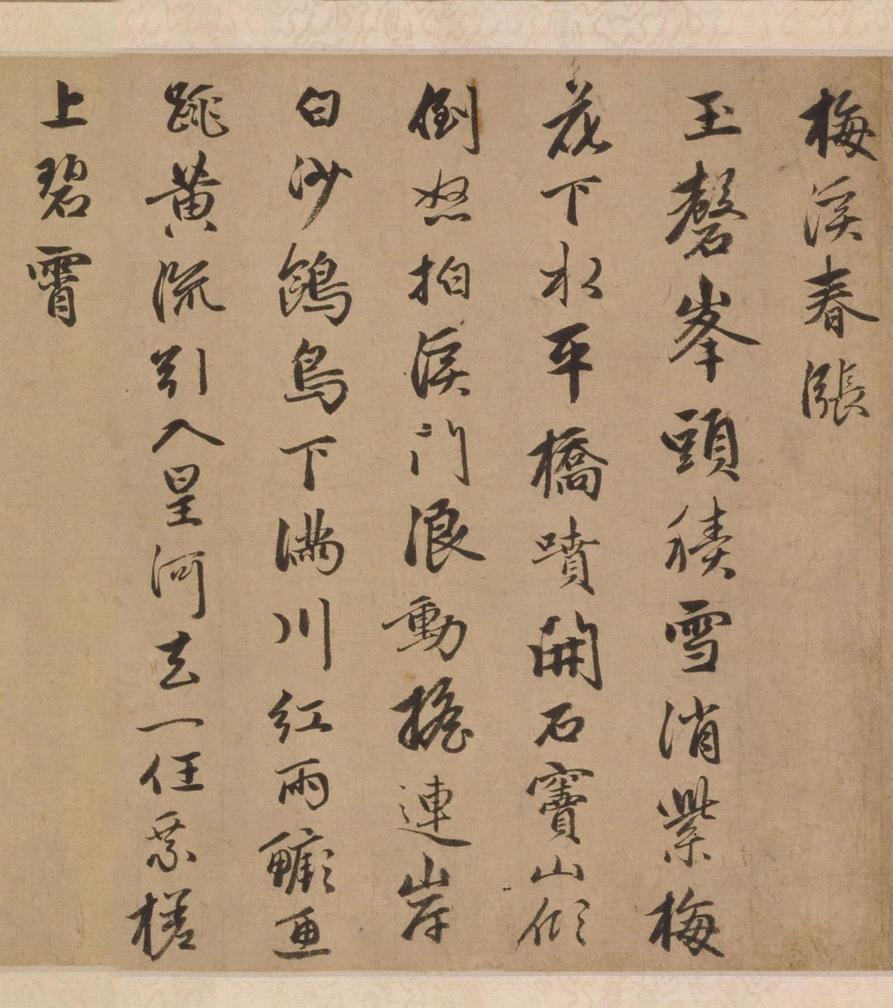 梅溪春漲
玉磬峯頭積雪消紫梅
花下水平橋噴開石竇山傾
倒怒拍溪門浪動搖連岸
白沙鷗鳥下滿川紅雨鱖魚
跳黃流引入星河去一任乘槎
上碧霄